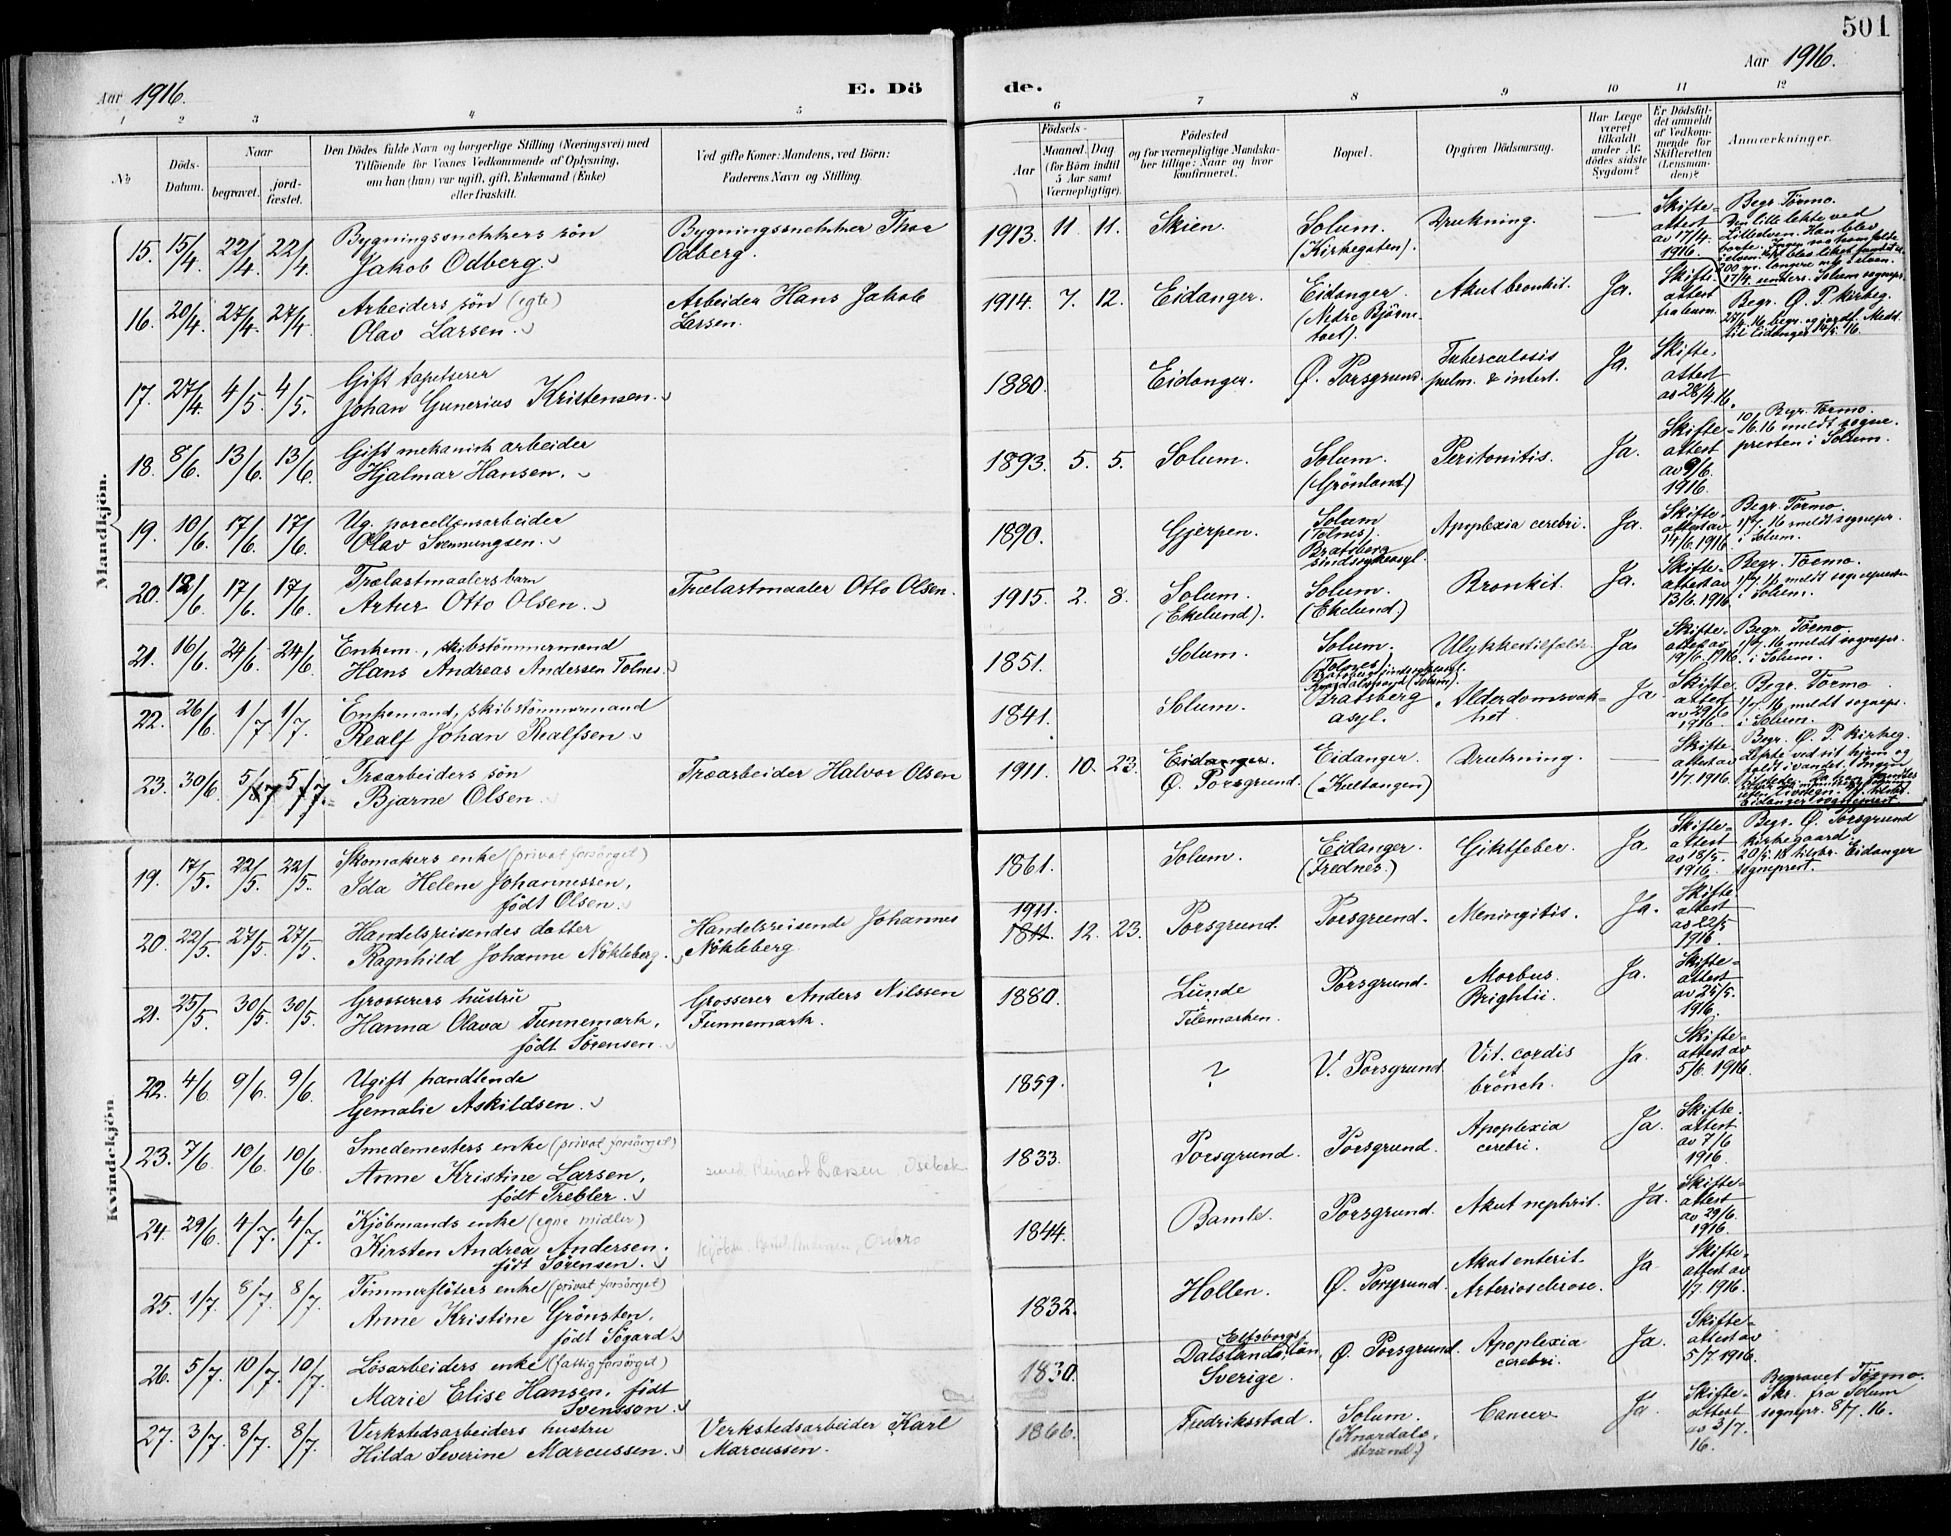 501
Aar 1916.
E. Dö
de.
Aar 1916.
1 2 3 4 5 6 7 8 9 10 11 12
No
Döds-Datum.
Naar
begravet.
jord-fæstet.
Den Dödes fulde Navn og borgerlige Stilling (Næringsvei) med
Tilföiende for Voxnes Vedkommende af Oplysning,
om han (hun) var ugift, gift, Enkemand (Enke)
eller fraskilt.
Ved gifte Koner: Mandens, ved Börn:
Faderens Navn og Stilling.
Födsels-
Aar
Maaned. Dag.
(for Börn indtil
5 Aar samt
Værnepligtige).
Födested
og for værnepligtige Mandska-
ber tillige: Naar og hvor
konfirmeret.
Bopæl.
Opgiven Dödsaarsag.
Har Læge
været
tilkaldt
under Af-
dödes sidste
Sygdom?
Er Dödsfal-
det anmeldt
af Vedkom-
mende for
Skifteretten
(Lensman-
den)?
Anmærkninger.
Mandkjön.
15. 15/4. 22/4. 22/4. Bygningssnekkers sön
Jakob Odberg.
Bygningssnekker Thor
Odberg.
1913. 11. 11. Skien. Solum.
(Kirkegaten).
Drukning. — Skifte-
attest
av 17/4.
1916.
Begr. Törmo.
Den lille lekte ved
Lilleelven. Han blev
borte.
16. 20/4. 27/4. 27/4. Arbeiders sön (egte)
Olav Larsen.
Arbeider Hans Jakob
Larsen.
1914. 7. 12. Eidanger. Eidanger.
(Nedre Björn-
tvet).
Akut bronkit. Ja. Skifte-
attest
Begr. Ø. P. kirkeg.
17. 27/4. 4/5. 4/5. Gift tapetserer
Johan Gunerius Kristensen.
1880. Eidanger. Ø. Porsgrund. Tuberculosis
pulm. & intest.
Ja. Skifte-
attest
av 28/4.16.
18. 8/6. 13/6. 13/6. Gift mekanisk arbeider
Hjalmar Hansen.
1893. 5. 5. Solum. Solum.
(Grönland)
Peritonitis. Ja. Skifte-
attest
av 9/6.
1916.
Begr. Törmo.
10/6.16 meldt sogne-
presten i Solum.
19. 10/6. 17/6. 17/6. Ug. porcellænsarbeider
Olav Svenningsen.
1890. Gjerpen. Solum
(Tolnes).
Bratsberg
sindssykeasyl.
Apoplexia cerebri. Ja. Skifte-
attest av
14/6.1916.
Begr. Törmo.
1/7. 16 meldt sognepr.
i Solum.
20. 12/6 17/6. 17/6. Trælastmaalers barn
Artur Otto Olsen.
Trælastmaaler Otto Olsen.
1915. 2. 8. Solum.
(Ekelund).
Solum.
(Ekelund.)
Bronkit. Ja. Skifte-
attest av
13/6. 1916.
Begr. Törmo.
1/7. 16 meldt sognepresten
i Solum.
21. 16/6. 24/6. 24/6. Enkem., skibstömmermand
Hans Andreas Andersen Tolnes.
1851. Solum. Solum.
(Tolnes)
Ulykkestilfælde. Ja. Skifte-
attest av
19/6. 1916.
Begr. Törmo.
1/7. 16 meldt sognepr.
i Solum.
22. 26/6. 1/7 1/7. Enkemand, skibstömmermand
Realf Johan Realfsen.
1841. Solum. Bratsberg
asyl.
Alderdomssvak-
het.
Ja. Skifte-
attest
av 29/6
1916.
Begr. Törmo
1/7. 16 meldt sognepr.
i Solum.
23. 30/6. 5/7 5/7. Træarbeiders sön
Bjarne Olsen.
Træarbeider Halvor Olsen
1911. 10. 23. Eidanger.
Ø. Porsgrund.
Eidanger.
(Kultangen)
Drukning. — Skifte-
attest av
1/7. 1916.
Begr. Ø. P. kirkeg.
Lekte ved sit hjem og
faldt i vandet. Ingen
Kvindekjön
19. 17/5. 22/5. 22/5. Skomakers enke (privat forsörget)
Ida Helene Johannessen,
födt Olsen.
1861. Solum. Eidanger.
(Frednes.)
Giktfeber. Ja. Skifte-
attest
av 18/5.
1916.
Begr. Ø. Porsgrund
kirkegaard.
20/5. 16 tilskr. Eidanger
sogneprest.
20. 22/5. 27/5. 27/5. Handelsreisendes datter
Ragnhild Johanne Nökleberg.
Handelsreisende Johannes
Nökleberg.
1911.
1811. 12. 23. Porsgrund. Porsgrund. Meningitis. Ja. Skifte-
attest
av 22/5
1916.
21. 25/5. 30/5. 30/5. Grosserers hustru
Hanna Olava Funnemark,
födt Sörensen.
Grosserer Anders Nilssen
Funnemark.
1880. Lunde
i
Telemarken.
Porsgrund. Morbus
Brightii.
Ja. Skifte-
attest
av 25/5.
1916.
22. 4/6. 9/6. 9/6. Ugift handlende
Gemalie Askildsen.
1859. ? V. Porsgrund Vit. cordis
et
bronch.
Ja. Skifte-
attest av
5/6. 1916.
23. 7/6. 10/6. 10/6. Smedemesters enke (privat forsörget)
Anne Kristine Larsen,
födt Trebler.
smed Reinert Larsen, Osebak.
1833. Porsgrund. Porsgrund. Apoplexia
cerebri.
Ja. Skifte-
attest
av 7/6
1916.
24. 29/6. 4/7. 4/7. Kjöbmands enke (egne midler)
Kirsten Andrea Andersen.
födt Sörensen.
1844. Bamle. Porsgrund. Akut nephrit. Ja. Skifte-
attest
av 29/6.
1916.
25. 1/7. 8/7. 8/7. Timmerflöters enke (privat forsörget)
Anne Kristine Grönsten,
födt Sögard.
1832. Hollen. Ø. Porsgrund. Akut enterit.
Arteriosclerose.
Ja. Skifte-
attest av
1/7. 1916.
26. 5/7. 10/7. 10/7. Lösarbeiders enke (fattigforsörget)
Marie Elise Hansen, födt
Svensson.
1830. Elfsborgs
Dalsland, län,
Sverige.
Ø. Porsgrund. Apoplexia
cerebri.
Ja. Skifte-
attest av
5/7. 1916.
27. 3/7. 8/7. 8/7. Verkstedsarbeiders hustru
Hilda Severine Marcussen.
Verkstedsarbeider Karl
Marcussen.
1866. Fredriksstad. Solum.
(Knardals-
strand.)
Cancer. Ja. Skifte-
attest
av 3/7.
16.
Begravet Törmo.
Skr. fra Solum
sognepr. 8/7. 16.